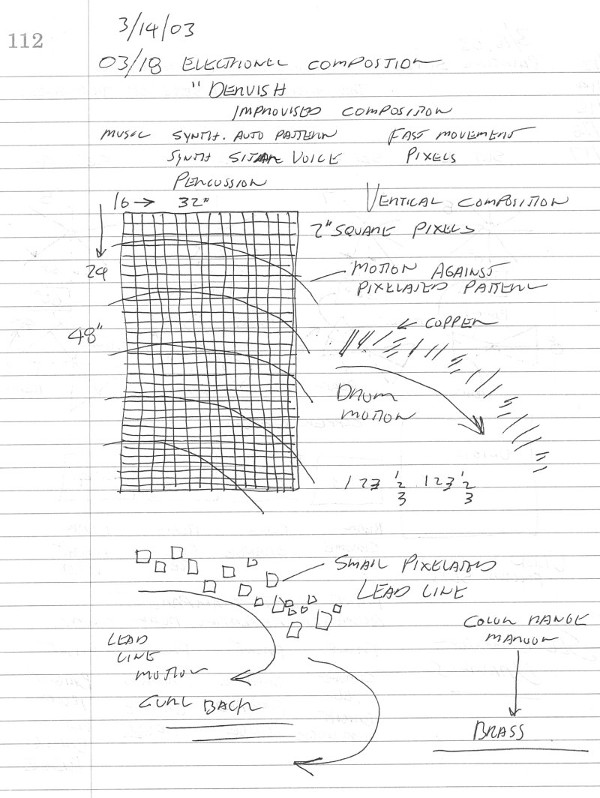 112
3/14/03
03/18 ELECTRONIC COMPOSTION
" DERVISH
IMPROVISED COMPOSITION
MUSIC SYNTH. AUTO PATTERN FAST MOVEMENT
SYNTH SITAR VOICE PIXELS
PERCUSSION
16 → 32" VERTICAL COMPOSITION
2" SQUARE PIXELS
24
MOTION AGAINST
PIXELATED PATTERN
48"
← COPPER
DRUM
MOTION
1 2 3 1/2 3 1 2 3 1/2 3
SMALL PIXELATED
LEAD LINE
COLOR RANGE
MAROON
LEAD
LINE
MOTION
CURL BACK
BRASS